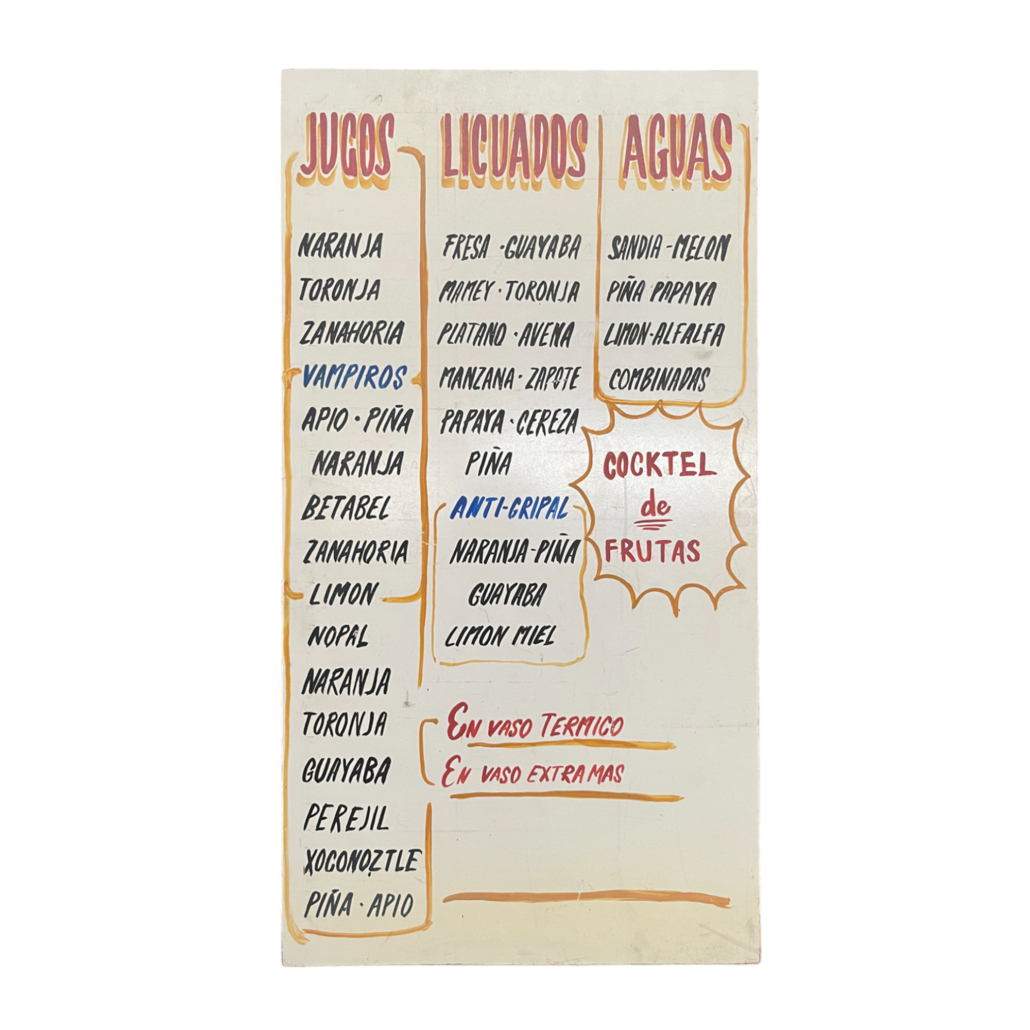 JUGOS
NARANJA
TORONJA
ZANAHORIA
VAMPIROS
APIO · PIÑA
NARANJA
BETABEL
ZANAHORIA
LIMON
NOPAL
NARANJA
TORONJA
GUAYABA
PEREJIL
XOCONOZTLE
PIÑA · APIO
LICUADOS
FRESA · GUAYABA
MAMEY · TORONJA
PLATANO · AVENA
MANZANA · ZAPOTE
PAPAYA · CEREZA
PIÑA
ANTI-GRIPAL
NARANJA-PIÑA
GUAYABA
LIMON MIEL
EN VASO TERMICO
EN VASO EXTRA MAS
AGUAS
SANDIA-MELON
PIÑA PAPAYA
LIMON-ALFALFA
COMBINADAS
COCKTEL
de
FRUTAS